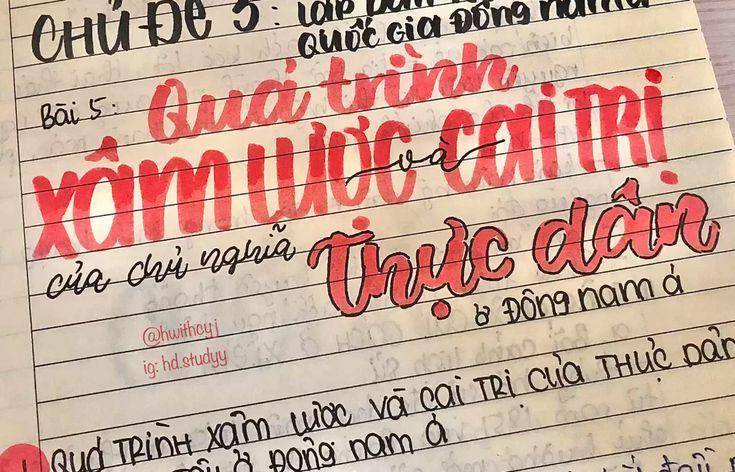 CHỦ ĐỀ 5:
QUỐC GIA ĐÔNG NAM Á
Bài 5: Quá trình
XÂM LƯỢC và CAI TRỊ
của chủ nghĩa Thực dân
ở ĐÔNG NAM Á
@hwithcyj
ig: hd.studyy
1 QUÁ TRÌNH XÂM LƯỢC VÀ CAI TRỊ CỦA THỰC DÂN
ở ĐÔNG NAM Á